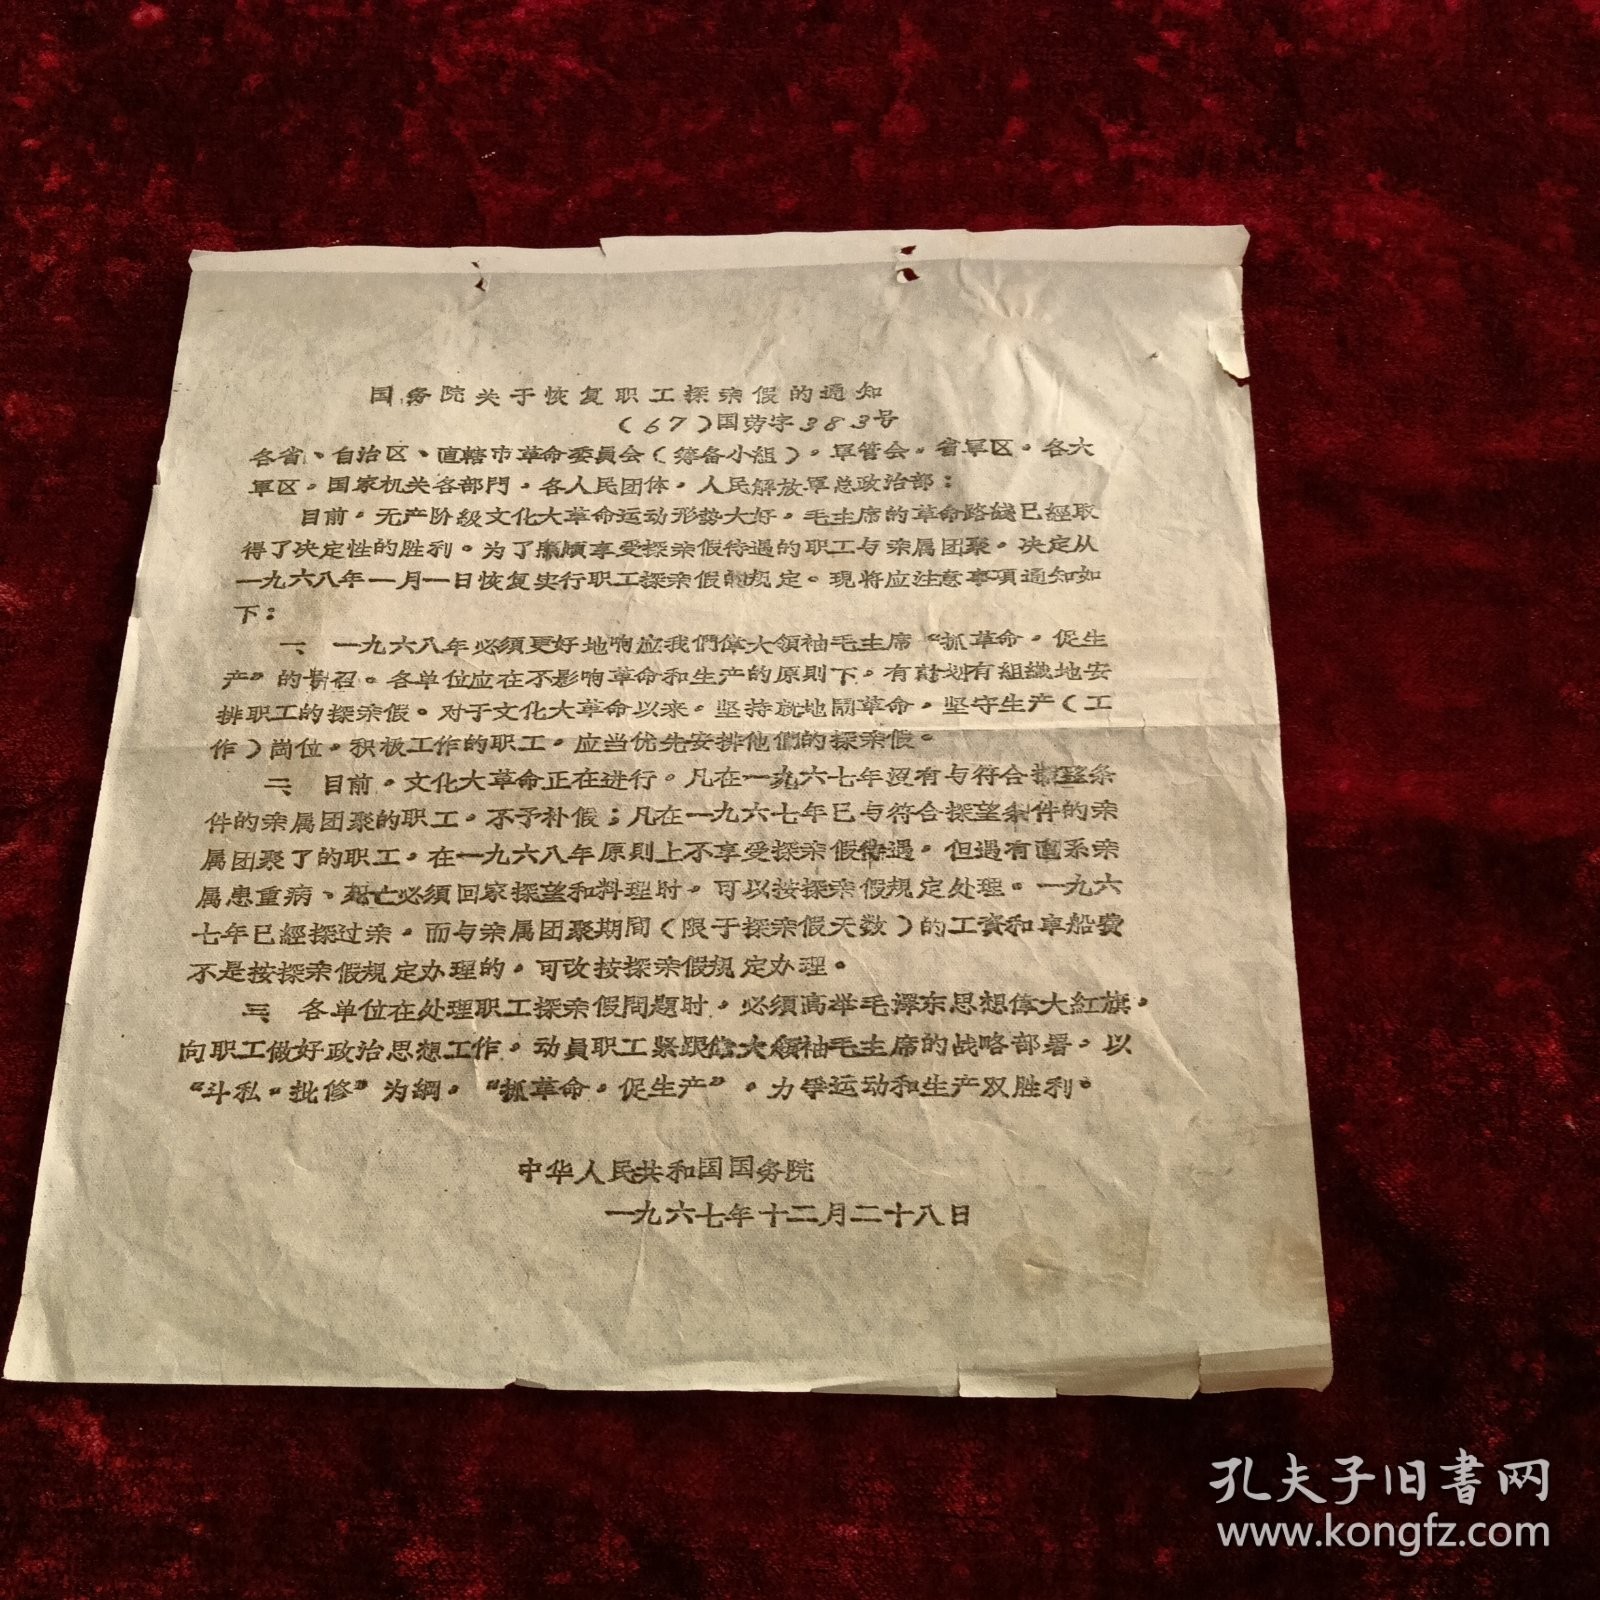 国务院关于恢复职工探亲假的通知
(67)国劳字383号
各省、自治区、直辖市革命委員会(筹备小組)。軍管会。省軍区。各大
軍区。国家机关各部門。各人民团体。人民解放軍总政治部：
目前。无产阶级文化大革命运动形势大好。毛主席的革命路线已經取
得了决定性的胜利。为了照顾享受探亲假待遇的职工与亲属团聚。决定从
一九六八年一月一日恢复实行职工探亲假的规定。現将应注意事項通知如
下：
一、一九六八年必須更好地响应我們偉大領袖毛主席“抓革命。促生
产”的号召。各单位应在不影响革命和生产的原則下。有計划有組織地安
排职工的探亲假。对于文化大革命以来。坚持就地鬧革命。坚守生产(工
作)岗位。积极工作的职工。应当优先安排他們的探亲假。
二、目前。文化大革命正在进行。凡在一九六七年沒有与符合探望条
件的亲属团聚的职工。不予补假；凡在一九六七年已与符合探望条件的亲
属团聚了的职工。在一九六八年原則上不享受探亲假待遇。但遇有直系亲
属患重病、死亡必須回家探望和料理时。可以按探亲假规定处理。一九六
七年已經探过亲。而与亲属团聚期間(限于探亲假天数)的工資和車船費
不是按探亲假規定办理的。可改按探亲假規定办理。
三、各单位在处理职工探亲假問題时。必須高举毛澤东思想偉大紅旗。
向职工做好政治思想工作。动員职工紧跟偉大領袖毛主席的战略部署。以
“斗私。批修”为綱。“抓革命。促生产”。力爭运动和生产双胜利。
中华人民共和国国务院
一九六七年十二月二十八日
孔夫子旧書网
www.kongfz.com